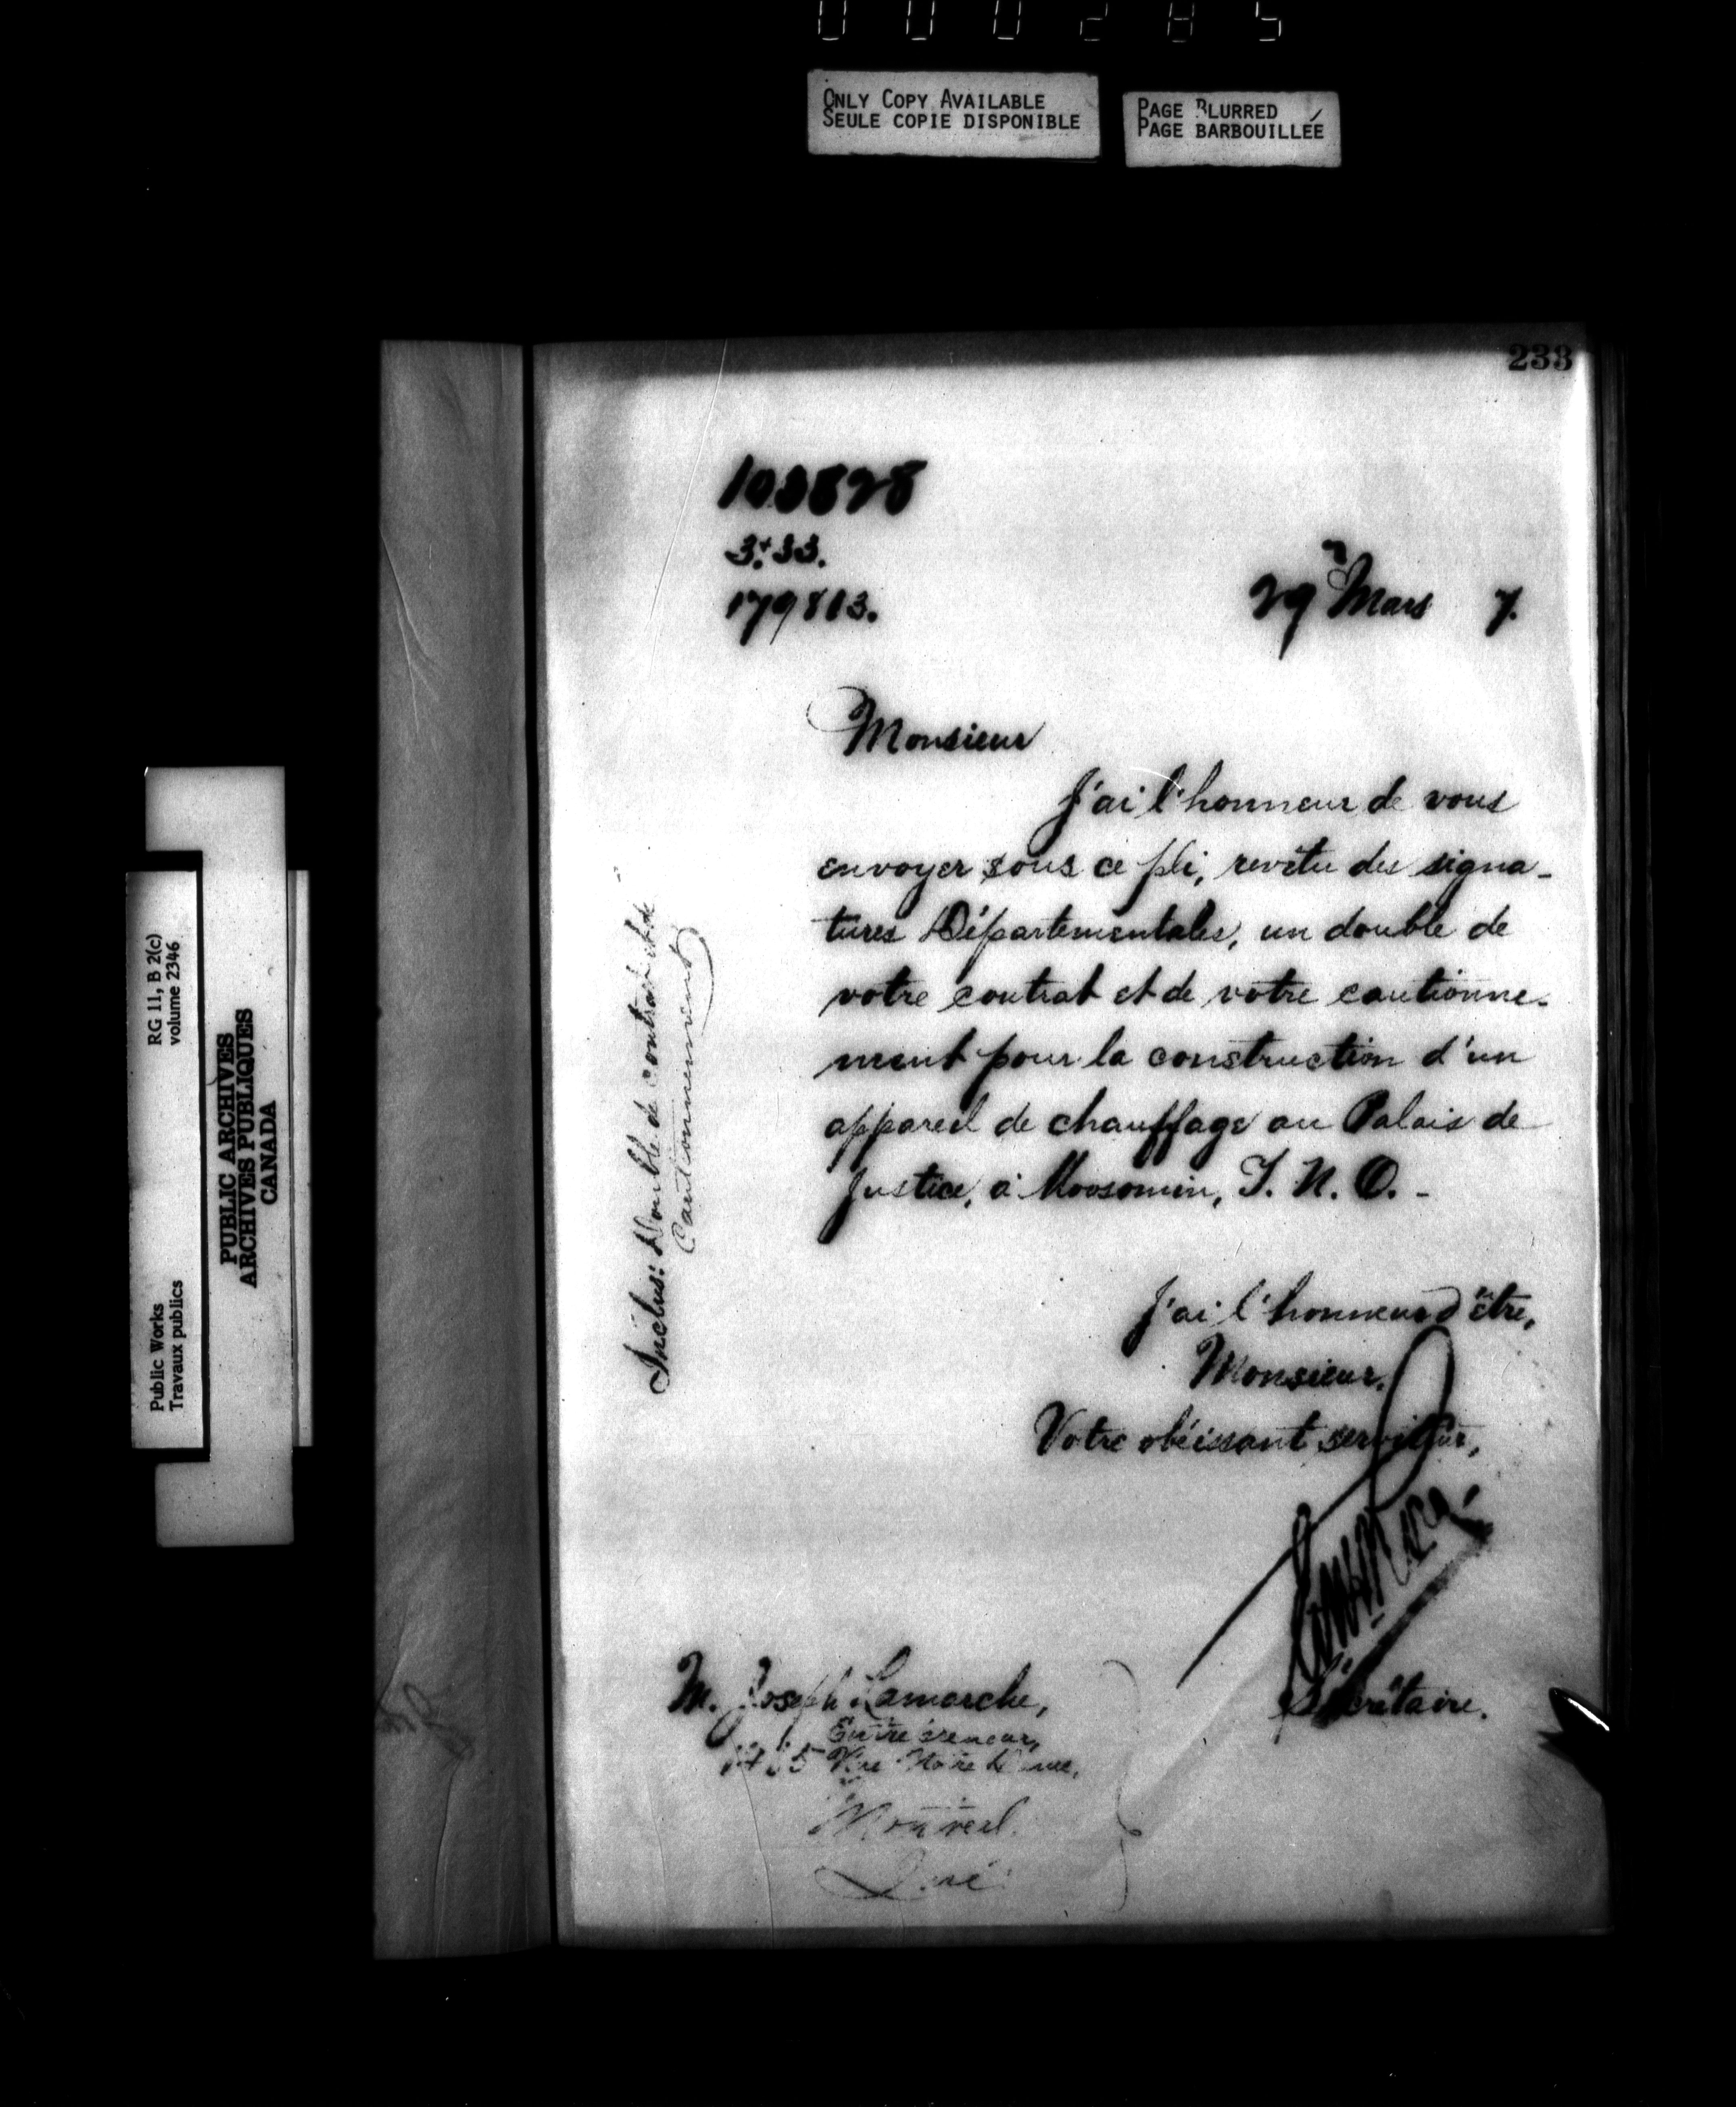 000285
ONLY COPY AVAILABLE
SEULE COPIE DISPONIBLE
PAGE BLURRED
PAGE BARBOUILLÉE
233
103828
179813.
29 Mars 7.
Monsieur
J'ai l'honneur de vous
envoyer sous ce pli, revêtu des signa-
tures Départementales, un double de
votre contrat et de votre cautionne-
ment pour la construction d'un
appareil de chauffage au Palais de
Justice, à Moosomin, T. N. O. -
J'ai l'honneur d'être,
Monsieur,
Votre obéissant serviteur,
Secrétaire.
M. Joseph Lamarche,
Entrepreneur,
Rue Notre Dame,
Montreal.
Qué.
Inclus: Double de contrat et de
Cautionnement
RG 11, B 2(c)
volume 2346
Public Works
Travaux publics
PUBLIC ARCHIVES
ARCHIVES PUBLIQUES
CANADA